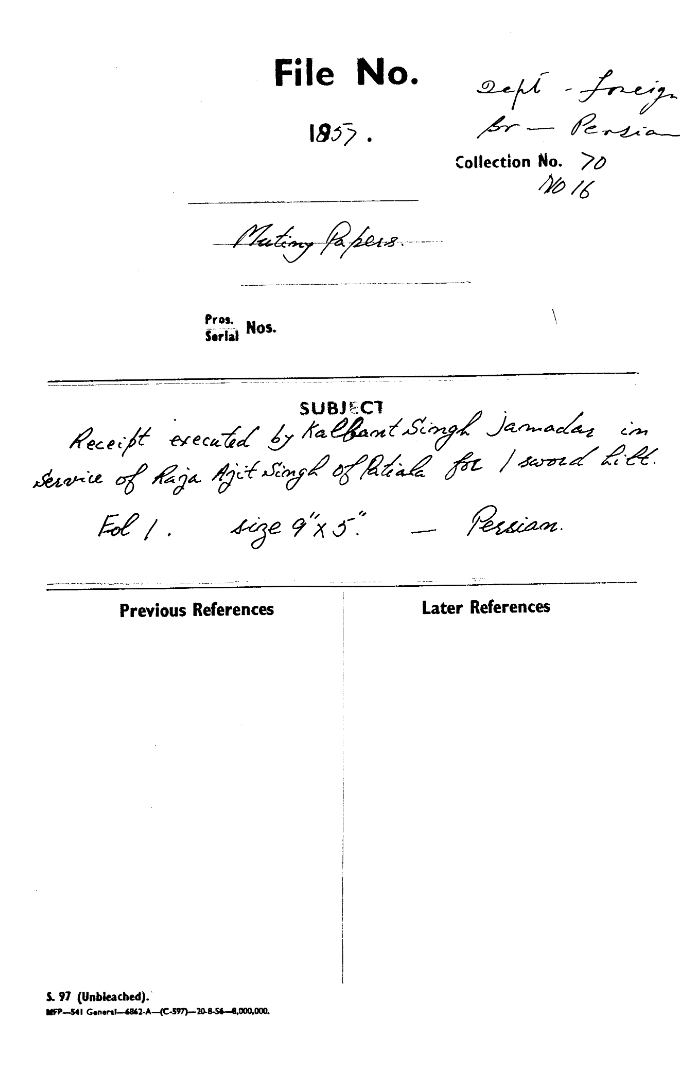 File No.
Dept - Foreign
1857.
Br — Persian
Collection No. 70
No 16
Mutiny Papers.
Pros.
Serial Nos.
SUBJECT
Receipt executed by Kalbant Singh Jamadar in
service of Raja Ajit Singh of Patiala for 1 sword hilt.
Fol 1. size 9"x 5". — Persian.
Previous References
Later References
S. 97 (Unbleached).
MFP—541 General—6862-A—(C-597)—20-8-56—8,000,000.